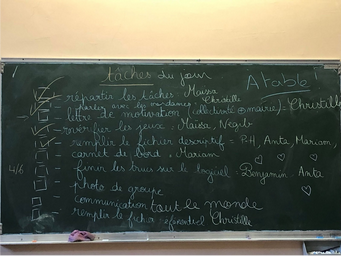 tâches du jour
Atabb !
- répartir les tâches Maïssa
- parler avec les mandaines Christelle
- lettre de motivation (collectivité mairie) - Christelle
- vérifier les jeux : Maïssa, Negib
- remplir le fichier descriptif = P-H, Anta, Mariam,
- carnet de bord : Mariam
4/6
- finir les trucs sur le logiciel - Benjamin Anta
- photo de groupe
- communication tout le monde
remplir le fichier référentiel Christelle